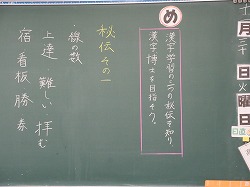 め
漢字学習の三つの秘伝を知り
漢字博士を目指そう。
秘伝その一
・線の数
上達 難しい 拝む
宿 看板 勝 奏
月
日
火
曜
日
日直